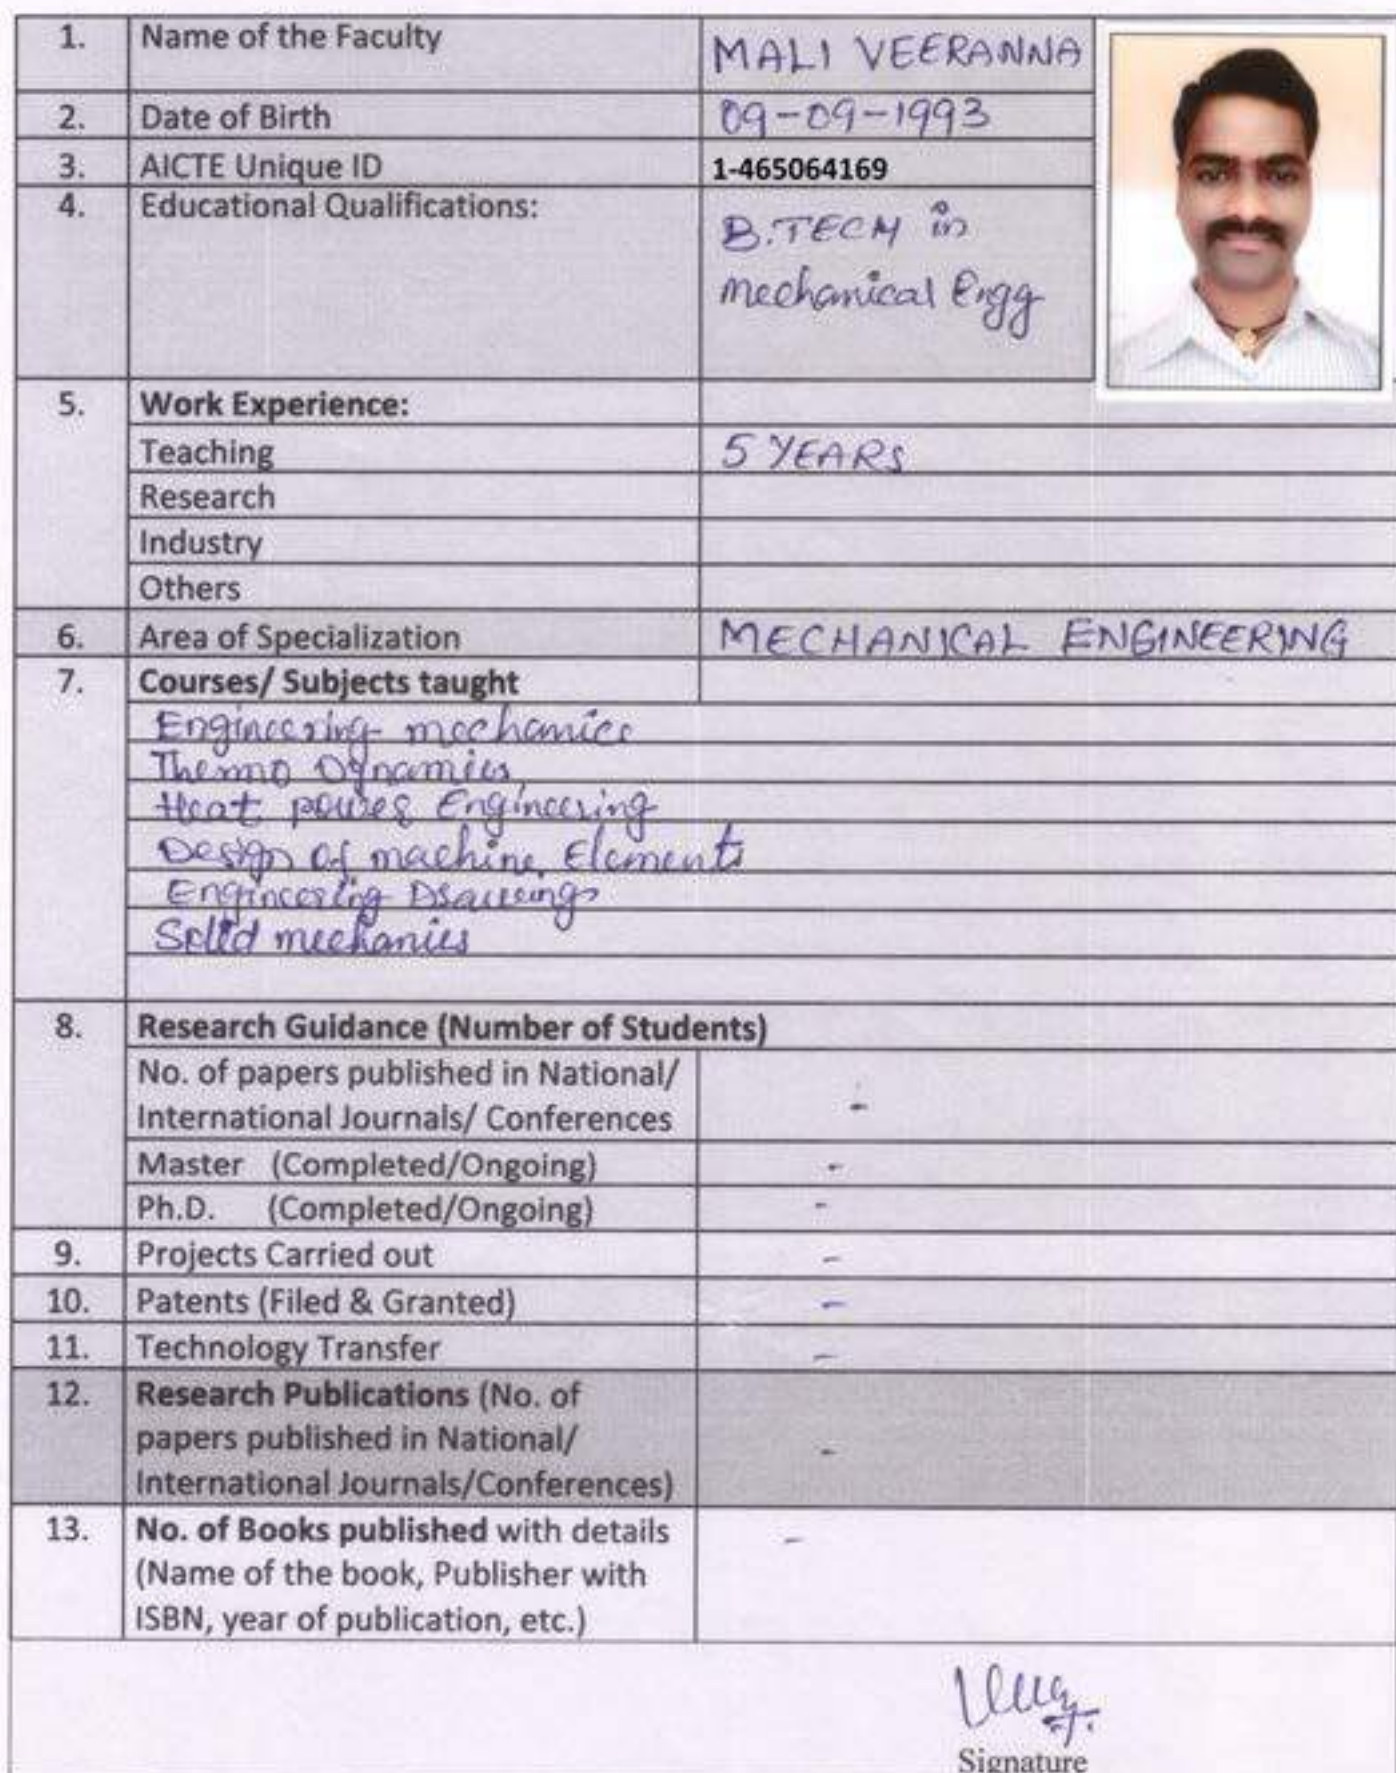 1. Name of the Faculty MALI VEERANNA
2. Date of Birth 09-09-1993
3. AICTE Unique ID 1-465064169
4. Educational Qualifications: B.TECH in
Mechanical Engg
5. Work Experience:
Teaching 5 YEARS
Research
Industry
Others
6. Area of Specialization MECHANICAL ENGINEERING
7. Courses/ Subjects taught
Engineering mechanics
Thermo Dynamics
Heat power Engineering
Design of machine Elements
Engineering Drawings
Solid mechanics
8. Research Guidance (Number of Students)
No. of papers published in National/ -
International Journals/ Conferences
Master (Completed/Ongoing) -
Ph.D. (Completed/Ongoing) -
9. Projects Carried out -
10. Patents (Filed & Granted) -
11. Technology Transfer -
12. Research Publications (No. of
papers published in National/ -
International Journals/Conferences)
13. No. of Books published with details -
(Name of the book, Publisher with
ISBN, year of publication, etc.)
Signature